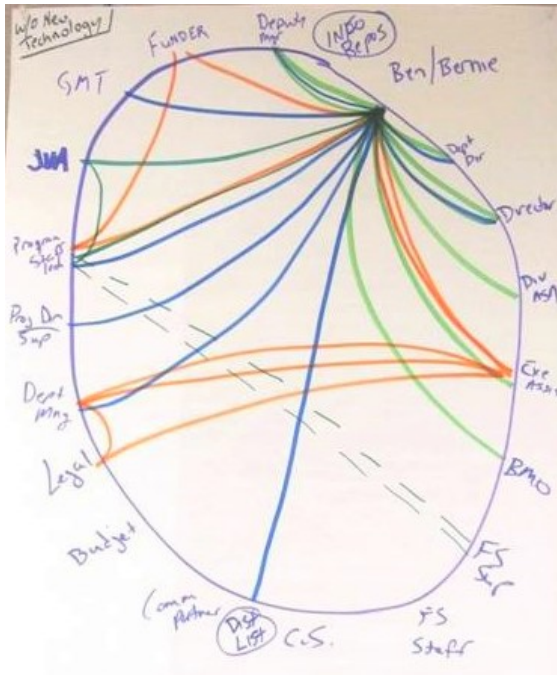 w/o New
Technology
FUNDER
Deputy
Mgr
INFO
REPOS
Ben/Bernie
GMT
Dept
Dir
JWA
Director
Program
Staff
Div
ASM
Prog Dir
Sup
Exe
Assis
Dept
Mng
Legal
BMO
Budget
FS
Sup
Comm
Partner
DIST
LIST
C.S.
FS
Staff